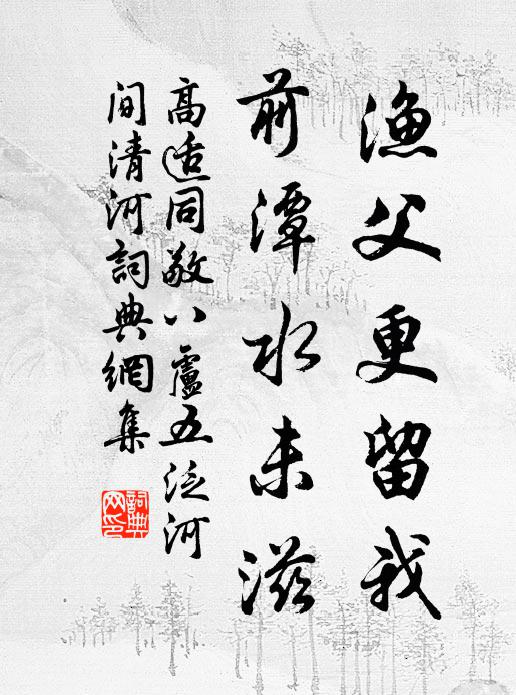 渔父更留我
前潭水未滋
高适同敬八盧五泛河
间清河詞典網集
詞典网印